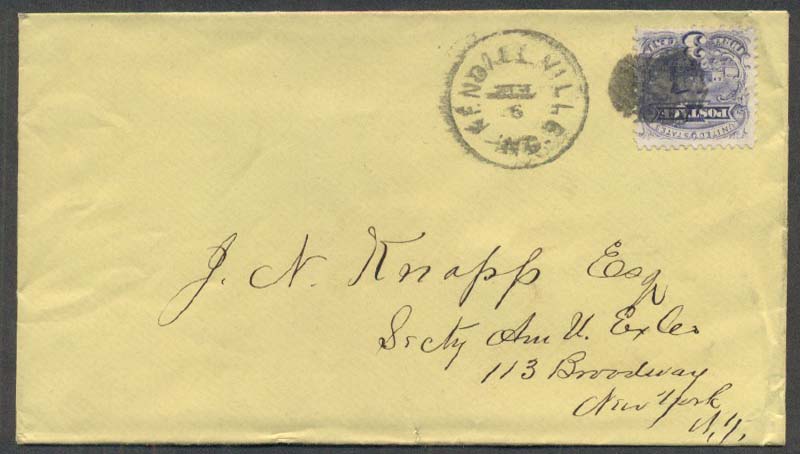 KENDALLVILLE
6
IND
3
POSTAGE
UNITED STATES
J. N. Knapp Esq
Secty Am U. Ex Co
113 Broadway
New York
N.Y.